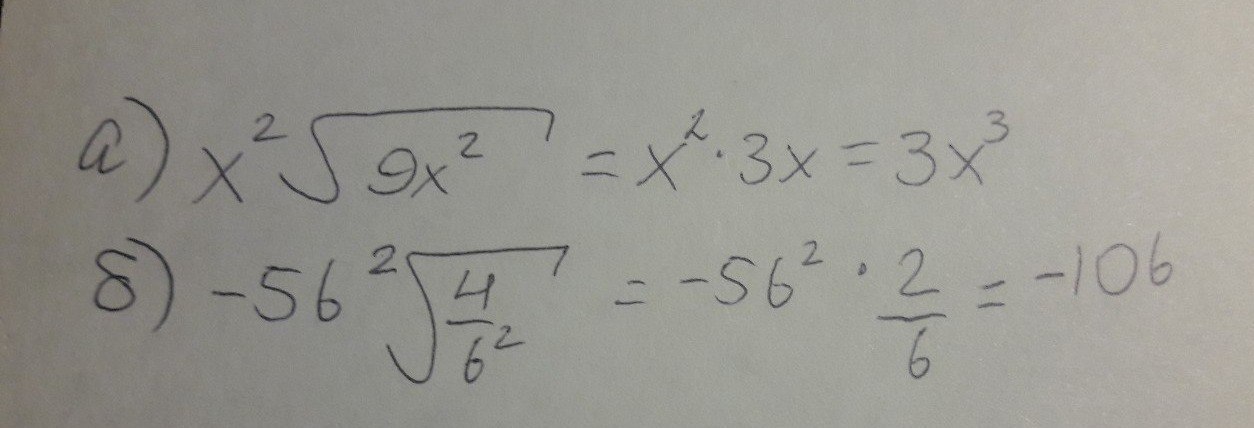 а) x²√(9x²) = x² · 3x = 3x³
б) -5б²√(4/б²) = -5б² · 2/б = -10б